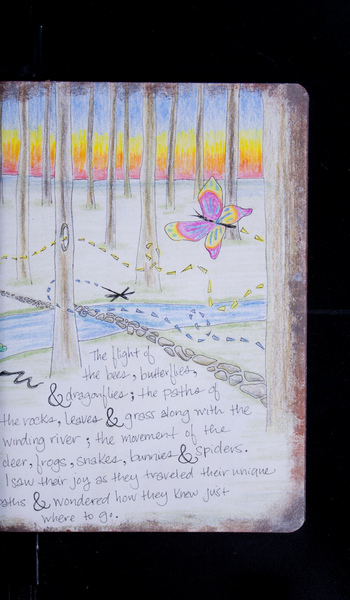 The flight of
the bees, butterflies,
& dragonflies; the paths of
the rocks, leaves & grass along with the
winding river; the movement of the
deer, frogs, snakes, bunnies & spiders.
I saw their joy as they traveled their unique
paths & wondered how they knew just
where to go.